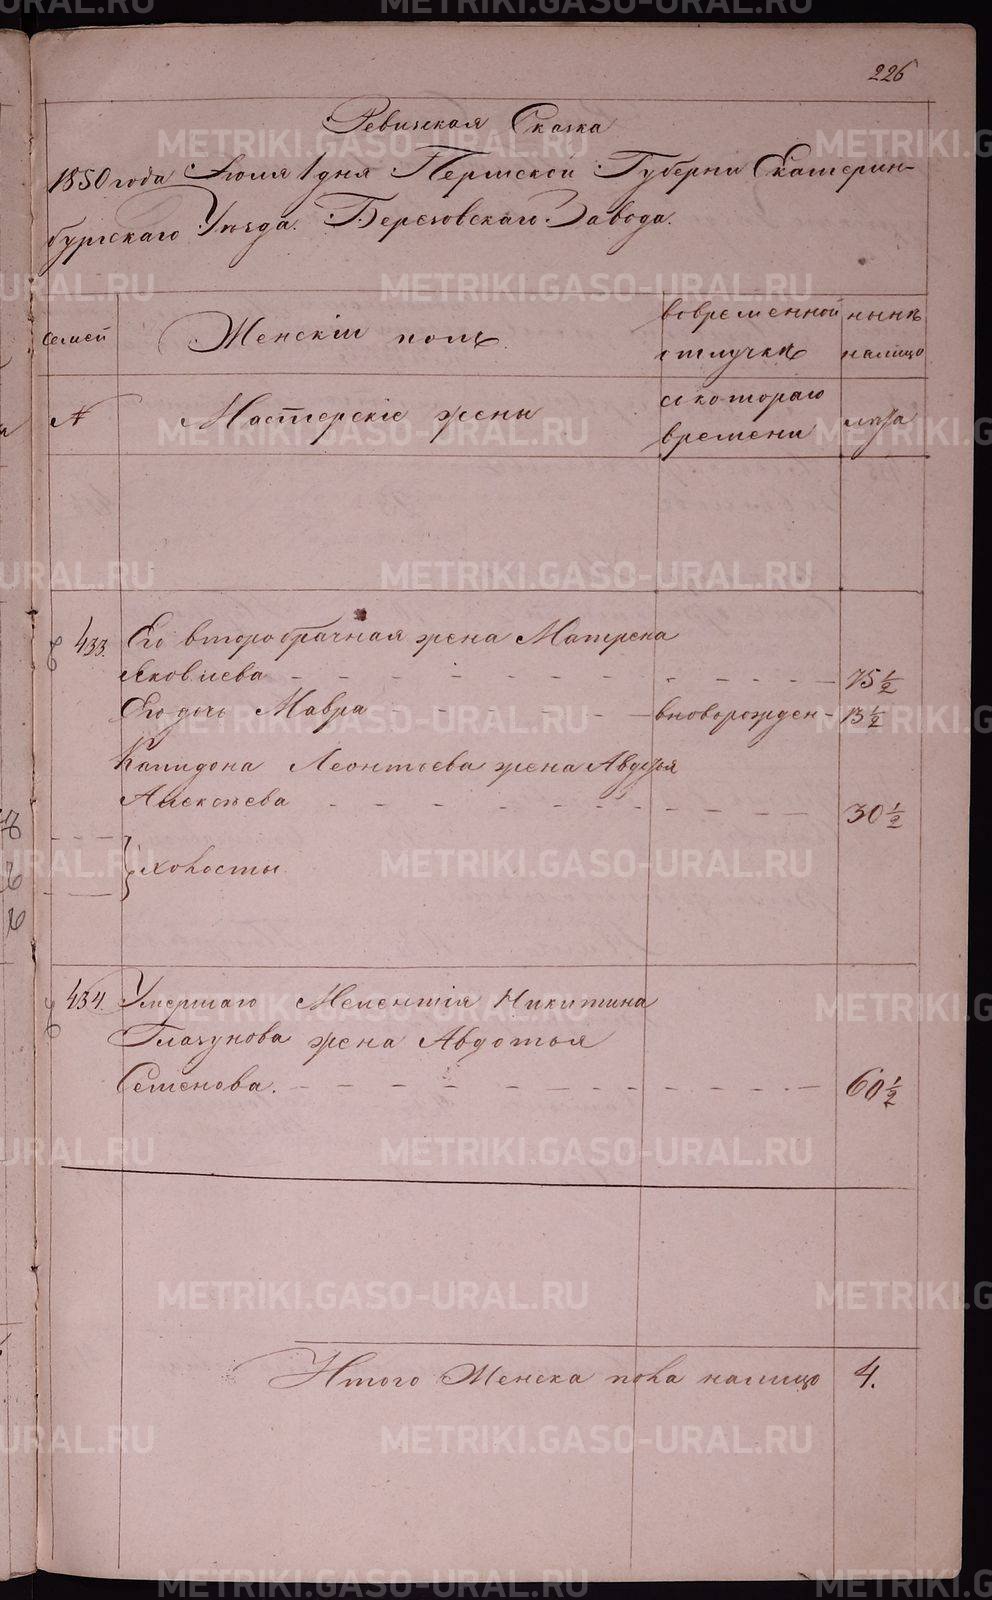 226
Ревизская Сказка
1850 года Июля 1 дня Пермской Губерни Екатерин-
бургскаго Уезда. Березовскаго Завода.
семей
Женскiй полъ
вовременной
отлучкѣ
нынѣ
налицо
№
Мастерскiе жены
скотораго
времени
лѣта
433.
Его второбрачная жена Матрена
Яковлева
75 1/2
Его дочь Мавра
вноворожден
13 1/2
Капидона Леонтьева жена Авдотья
Алексѣева
30 1/2
холосты
434.
Умершаго Мелентiя Никитина
Глазунова жена Авдотья
Семенова.
60 1/2
Итого Женска пола налицо
4.
METRIKI.GASO-URAL.RU